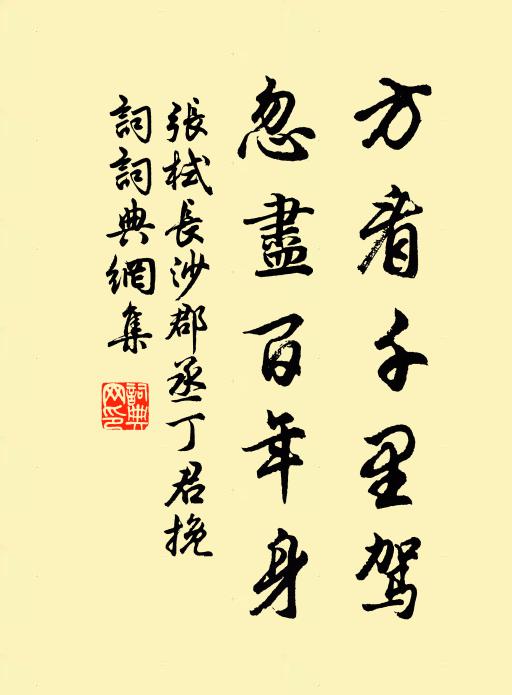 方看千里驾
忽盡百年身
張栻長沙郡丞丁君挽
詞詞典網集
詞典網印